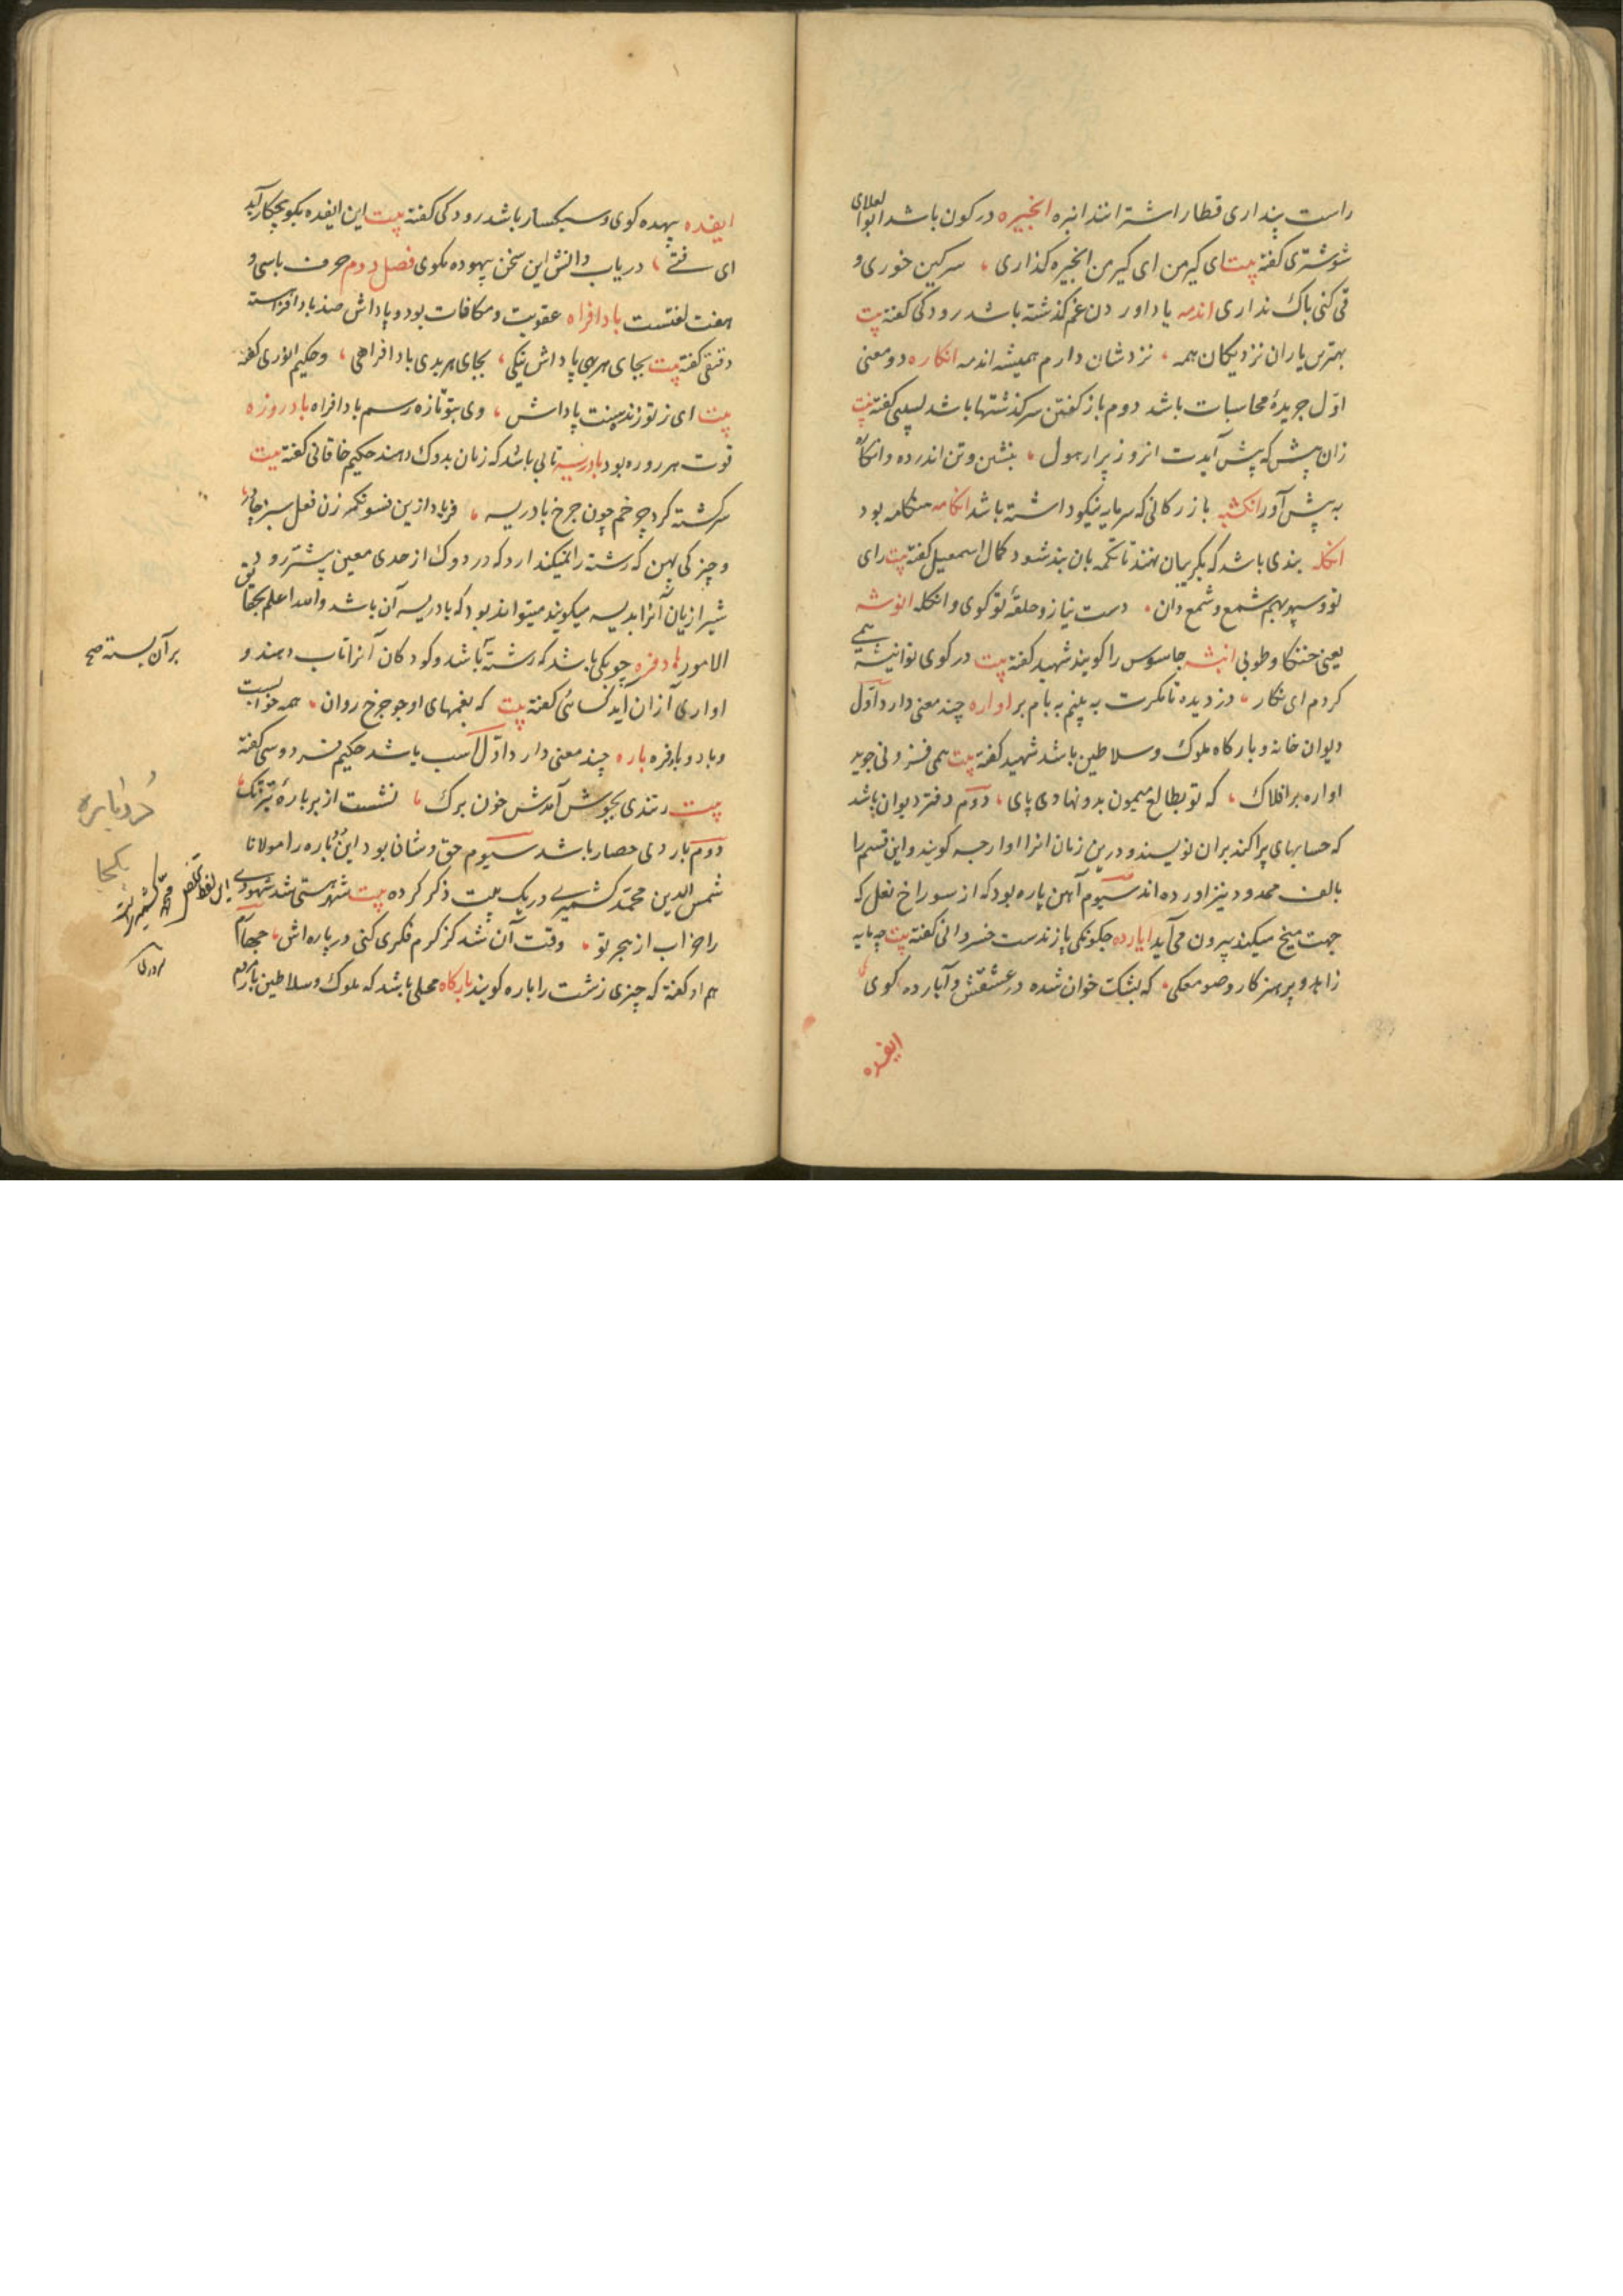 راست پنداری قطار اشترانند انبره انجیره در کون باشد ابوالعلای
شوشتری کفته بیت ای کیر من ای کیر من انجیره کذاری سرکین خوری و
قی کنی باک نداری اندمه یاد اوردن غم کذشته باشد رودکی کفته بیت
بهترین یاران نزدیکان همه نزدشان دارم همیشه اندمه انکاره دو معنی
اوّل جریدهٔ محاسبات باشد دوم باز کفتن سرکذشتها باشد لبیبی کفته بیت
زان پیش که پیش آیدت انروز پرار هول بنشین و تن اندر ده و انکاره
به پیش آور انکشبه بازرکانی که سرمایه نیکو داشته باشد انکامه هنکامه بود
انکله بندی باشد که بکریبان نهند تا تکمه بان بند شود کمال اسمعیل کفته بیت رای
تو و سپهر بهم شمع و شمع دان دست نیاز و حلقهٔ تو کوی و انکله انوشه
یعنی خنکا و طوبی انیشه جاسوس را کویند شهید کفته بیت در کوی تو انیشه همی
کردم ای نکار دزدیده تا مکرت به بینم به بام بر اواره چند معنی دارد اوّل
دیوان خانه و بارکاه ملوک و سلاطین باشد شهید کفته بیت همی فزونی جوید
اواره بر افلاک که تو بطالع میمون بدو نهادی پای دوم دفتر دیوان باشد
که حسابهای پراکنده بران نویسند و درین زمان انرا اوارجه کویند و این قسم را
بالف ممدود نیز اورده اند سیوم آهن پاره بود که از سوراخ نعل که
جهت میخ میکنند بیرون می آید ایارده چکونکی پازندست خسروانی کفته بیت چه مایه
زاهد و پرهیزکار و صومعکی که نسک خوان شده در عشقش و آیارده کوی
ایفده
ایفده بیهده کوی و سبکسار باشد رودکی کفته بیت این ایفده بکو بچکار آید
ای فتی دریاب دانش این سخن بیهوده مکوی فصل دوم حرف با سی و
هفت لغتست بادافراه عقوبت و مکافات بود و پاداش ضد بادافراست
دقیقی کفته بیت بجای هر بهی پاداش نیکی بجای هر بدی بادافراهی و حکیم انوری کفته
بیت ای ز تو زنده سنت پاداش وی بتو تازه رسم بادافراه بادروزه
قوت هر روزه بود بادریسه تایی باشد که زنان بدوک دهند حکیم خاقانی کفته بیت
سرکشته کرد چرخم چون چرخ بادریسه فریاد ازین فسونکر زن فعل سبز چادر
و چیزکی پهن که رشته را نمیکذارد که در دوک از حدی معین پشتر رود
شیرازیان آنرا بدیسه میکویند میتواند بود که بادریسه آن باشد والله اعلم بحقایق
الامور بادفره چوبکی باشد که رشته باشد و کودکان آنرا تاب دهند و
برآن بسته صح
اواری از ان آید کسائی کفته بیت که بغمهای او چو چرخ روان همه خوابست
و باد و بادفره باره چند معنی دارد اوّل اسب باشد حکیم فردوسی کفته
بیت ز تندی بجوش آمدش خون برک نشست از بر بارهٔ تیز تک
دوم باروی حصار باشد سیوم حق و شان بود این دو باره را مولانا
شمس الدین محمد کشمیری در یک بیت ذکر کرده بیت شهر هستی شد
را خراب از هجر تو وقت آن شد کز کرم فکری کنی در باره اش چهارم
هم او کفته که چیزی زشت را باره کویند بارکاه محلی باشد که ملوک و سلاطین بار